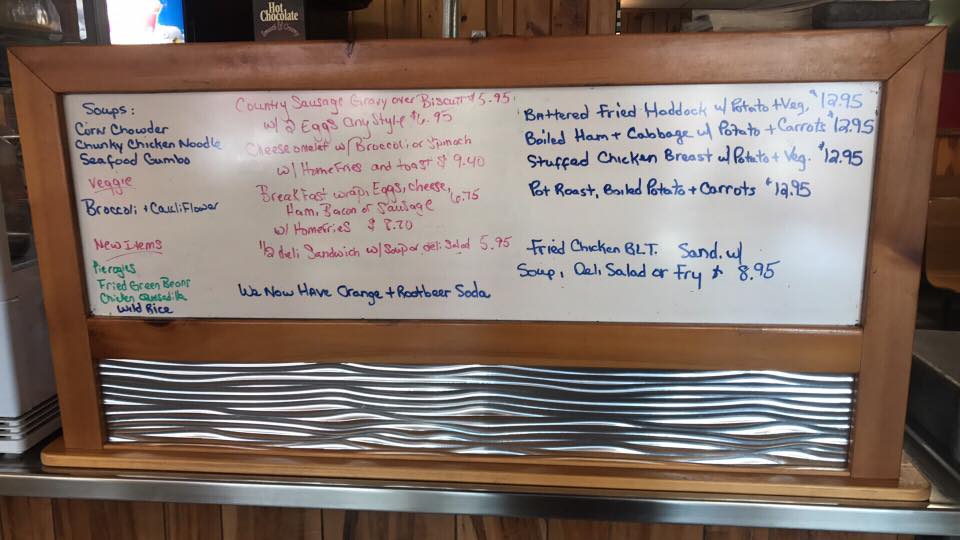 Hot
Chocolate
Soups:
Corn Chowder
Chunky Chicken Noodle
Seafood Gumbo
Veggie
Broccoli + Cauliflower
New Items
Pierogies
Fried Green Beans
Chicken Quesadilla
Wild Rice
Country Sausage Gravy over Biscuit $5.95
w/ 2 Eggs any Style $6.95
Cheese omelet w/ Broccoli or Spinach
w/ Home Fries and toast $ 9.40
Breakfast wrap, Eggs, cheese, 6.75
Ham, Bacon or Sausage
w/ Homefries $ 8.20
1/2 deli Sandwich w/ Soup or deli Salad 5.95
We Now Have Orange + Rootbeer Soda
Battered Fried Haddock w/ Potato + Veg, $12.95
Boiled Ham + Cabbage w/ Potato + Carrots $12.95
Stuffed Chicken Breast w/ Potato + Veg. $12.95
Pot Roast, Boiled Potato + Carrots $12.95
Fried Chicken BLT. Sand. w/
Soup, Deli Salad or Fry $ 8.95